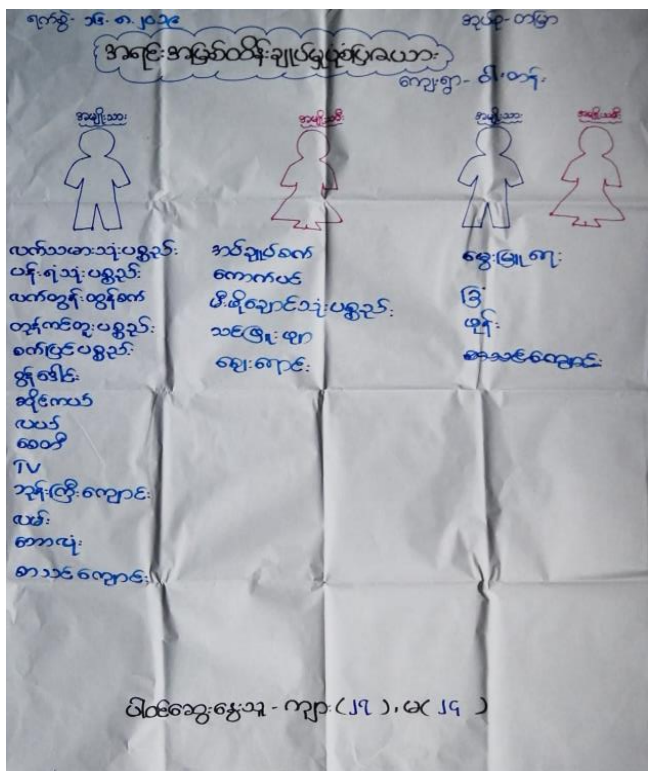 ရက်စွဲ- ၁၆. ၈. ၂၀၁၄
အုပ်စု-တမြာ
အရင်းအမြစ်ထိန်းချုပ်မှုပုံစံပြဇယား
ကျေးရွာ-
အမျိုးသား
အမျိုးသမီး
အမျိုးသား
အမျိုးသမီး
လက်သမားသုံးပစ္စည်း
ပန်းရံသုံးပစ္စည်း
လက်တွန်းထွန်စက်
တူးပစ္စည်း
စက်ပြင်ပစ္စည်း
ဆိုင်ကယ်
လယ်
စေတီ
TV
ဘုန်းကြီးကျောင်း
လမ်း
ဘောလုံး
စာသင်ကျောင်း
အပ်ချုပ်စက်
ကောက်ပင်
မီးဖိုချောင်သုံးပစ္စည်း
သင်ဖြူးဖျာ
ဈေးရောင်း
မွေးမြူရေး
ခြံ
ဖုန်း
စာသင်ကျောင်း
ပါဝင်ဆွေးနွေးသူ - ကျား (၂၇), မ (၂၄)